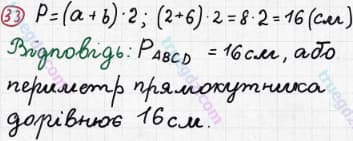 33 P=(a+b)·2; (2+6)·2=8·2=16(см)
Відповідь: P ABCD = 16см, або
периметр прямокутника
дорівнює 16см.